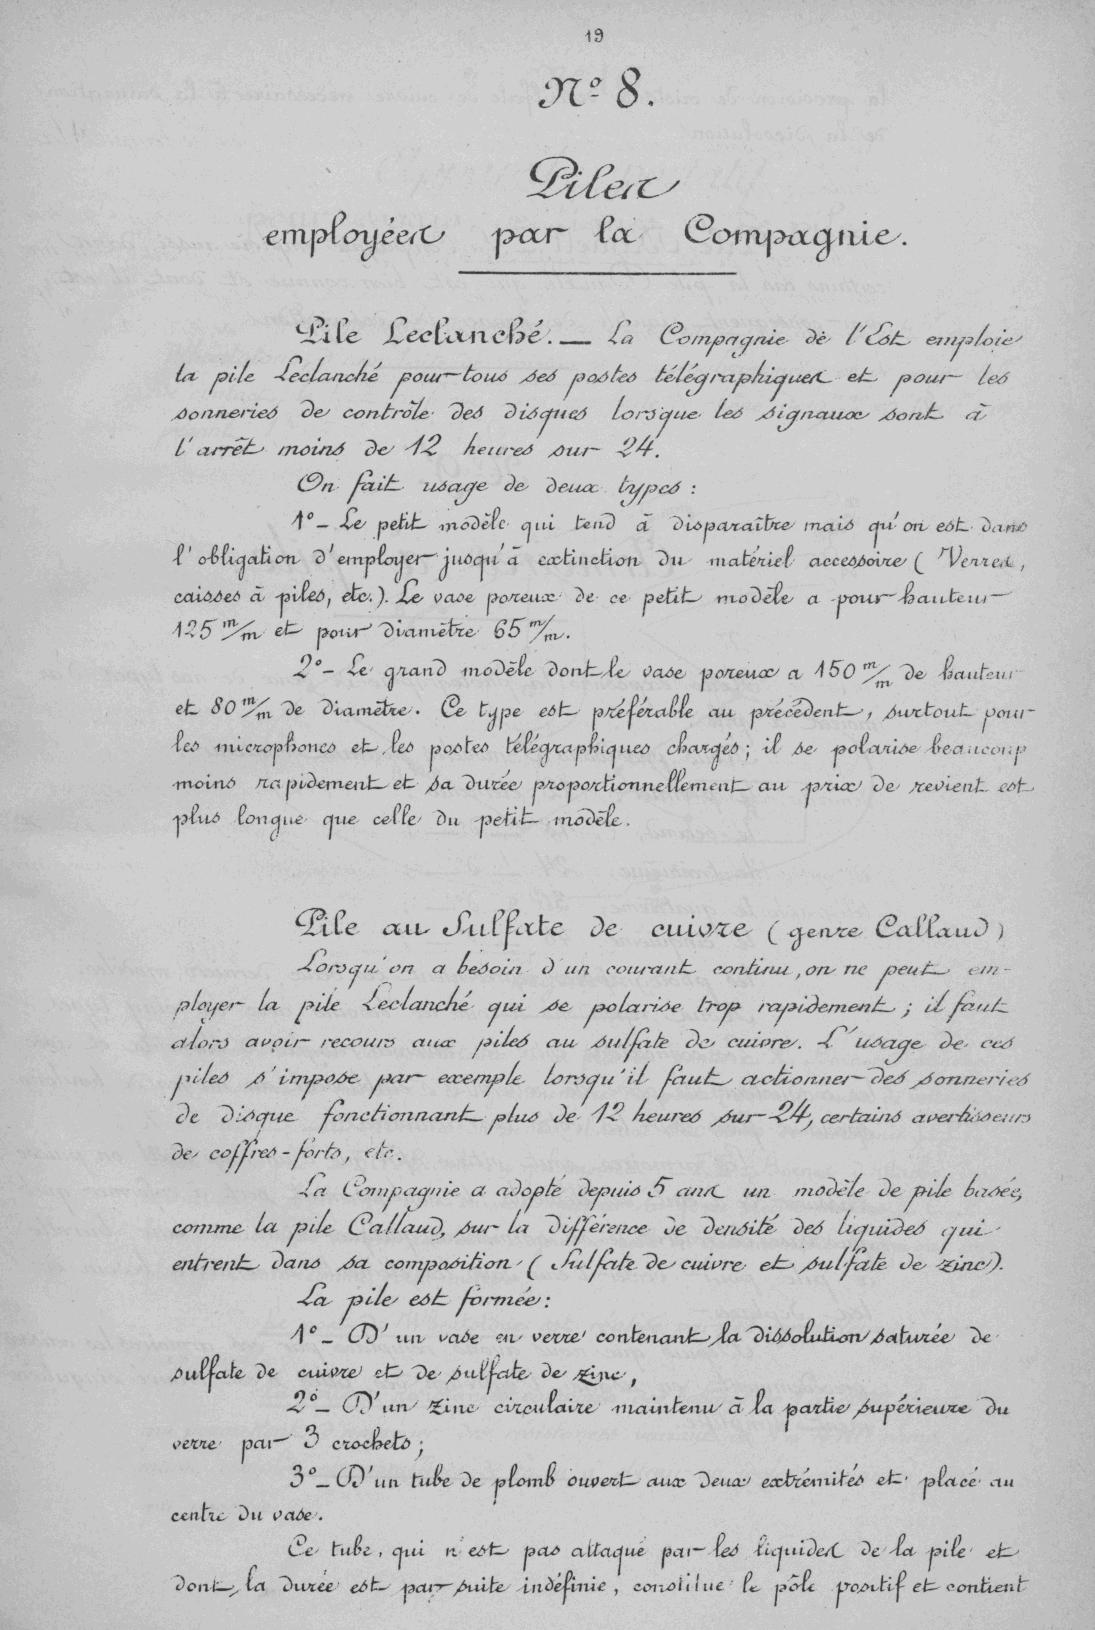 19
Nº 8.
Piles
employées par la Compagnie.
Pile Leclanché. — La Compagnie de l'Est emploie
la pile Leclanché pour tous ses postes télégraphiques et pour les
sonneries de contrôle des disques lorsque les signaux sont à
l'arrêt moins de 12 heures sur 24.
On fait usage de deux types :
1º – Le petit modèle qui tend à disparaître mais qu'on est dans
l'obligation d'employer jusqu'à extinction du matériel accessoire ( Verres,
caisses à piles, etc.). Le vase poreux de ce petit modèle a pour hauteur
125 m/m et pour diamètre 65 m/m.
2º – Le grand modèle dont le vase poreux a 150 m/m de hauteur
et 80 m/m de diamètre. Ce type est préférable au précédent, surtout pour
les microphones et les postes télégraphiques chargés ; il se polarise beaucoup
moins rapidement et sa durée proportionnellement au prix de revient est
plus longue que celle du petit modèle.
Pile au Sulfate de cuivre ( genre Callaud )
Lorsqu'on a besoin d'un courant continu, on ne peut em-
ployer la pile Leclanché qui se polarise trop rapidement ; il faut
alors avoir recours aux piles au sulfate de cuivre. L'usage de ces
piles s'impose par exemple lorsqu'il faut actionner des sonneries
de disque fonctionnant plus de 12 heures sur 24, certains avertisseurs
de coffres-forts, etc.
La Compagnie a adopté depuis 5 ans un modèle de pile basée,
comme la pile Callaud, sur la différence de densité des liquides qui
entrent dans sa composition ( Sulfate de cuivre et sulfate de zinc).
La pile est formée :
1º – D'un vase en verre contenant la dissolution saturée de
sulfate de cuivre et de sulfate de zinc,
2º – D'un zinc circulaire maintenu à la partie supérieure du
verre par 3 crochets ;
3º – D'un tube de plomb ouvert aux deux extrémités et placé au
centre du vase.
Ce tube, qui n'est pas attaqué par les liquides de la pile et
dont la durée est par suite indéfinie, constitue le pôle positif et contient